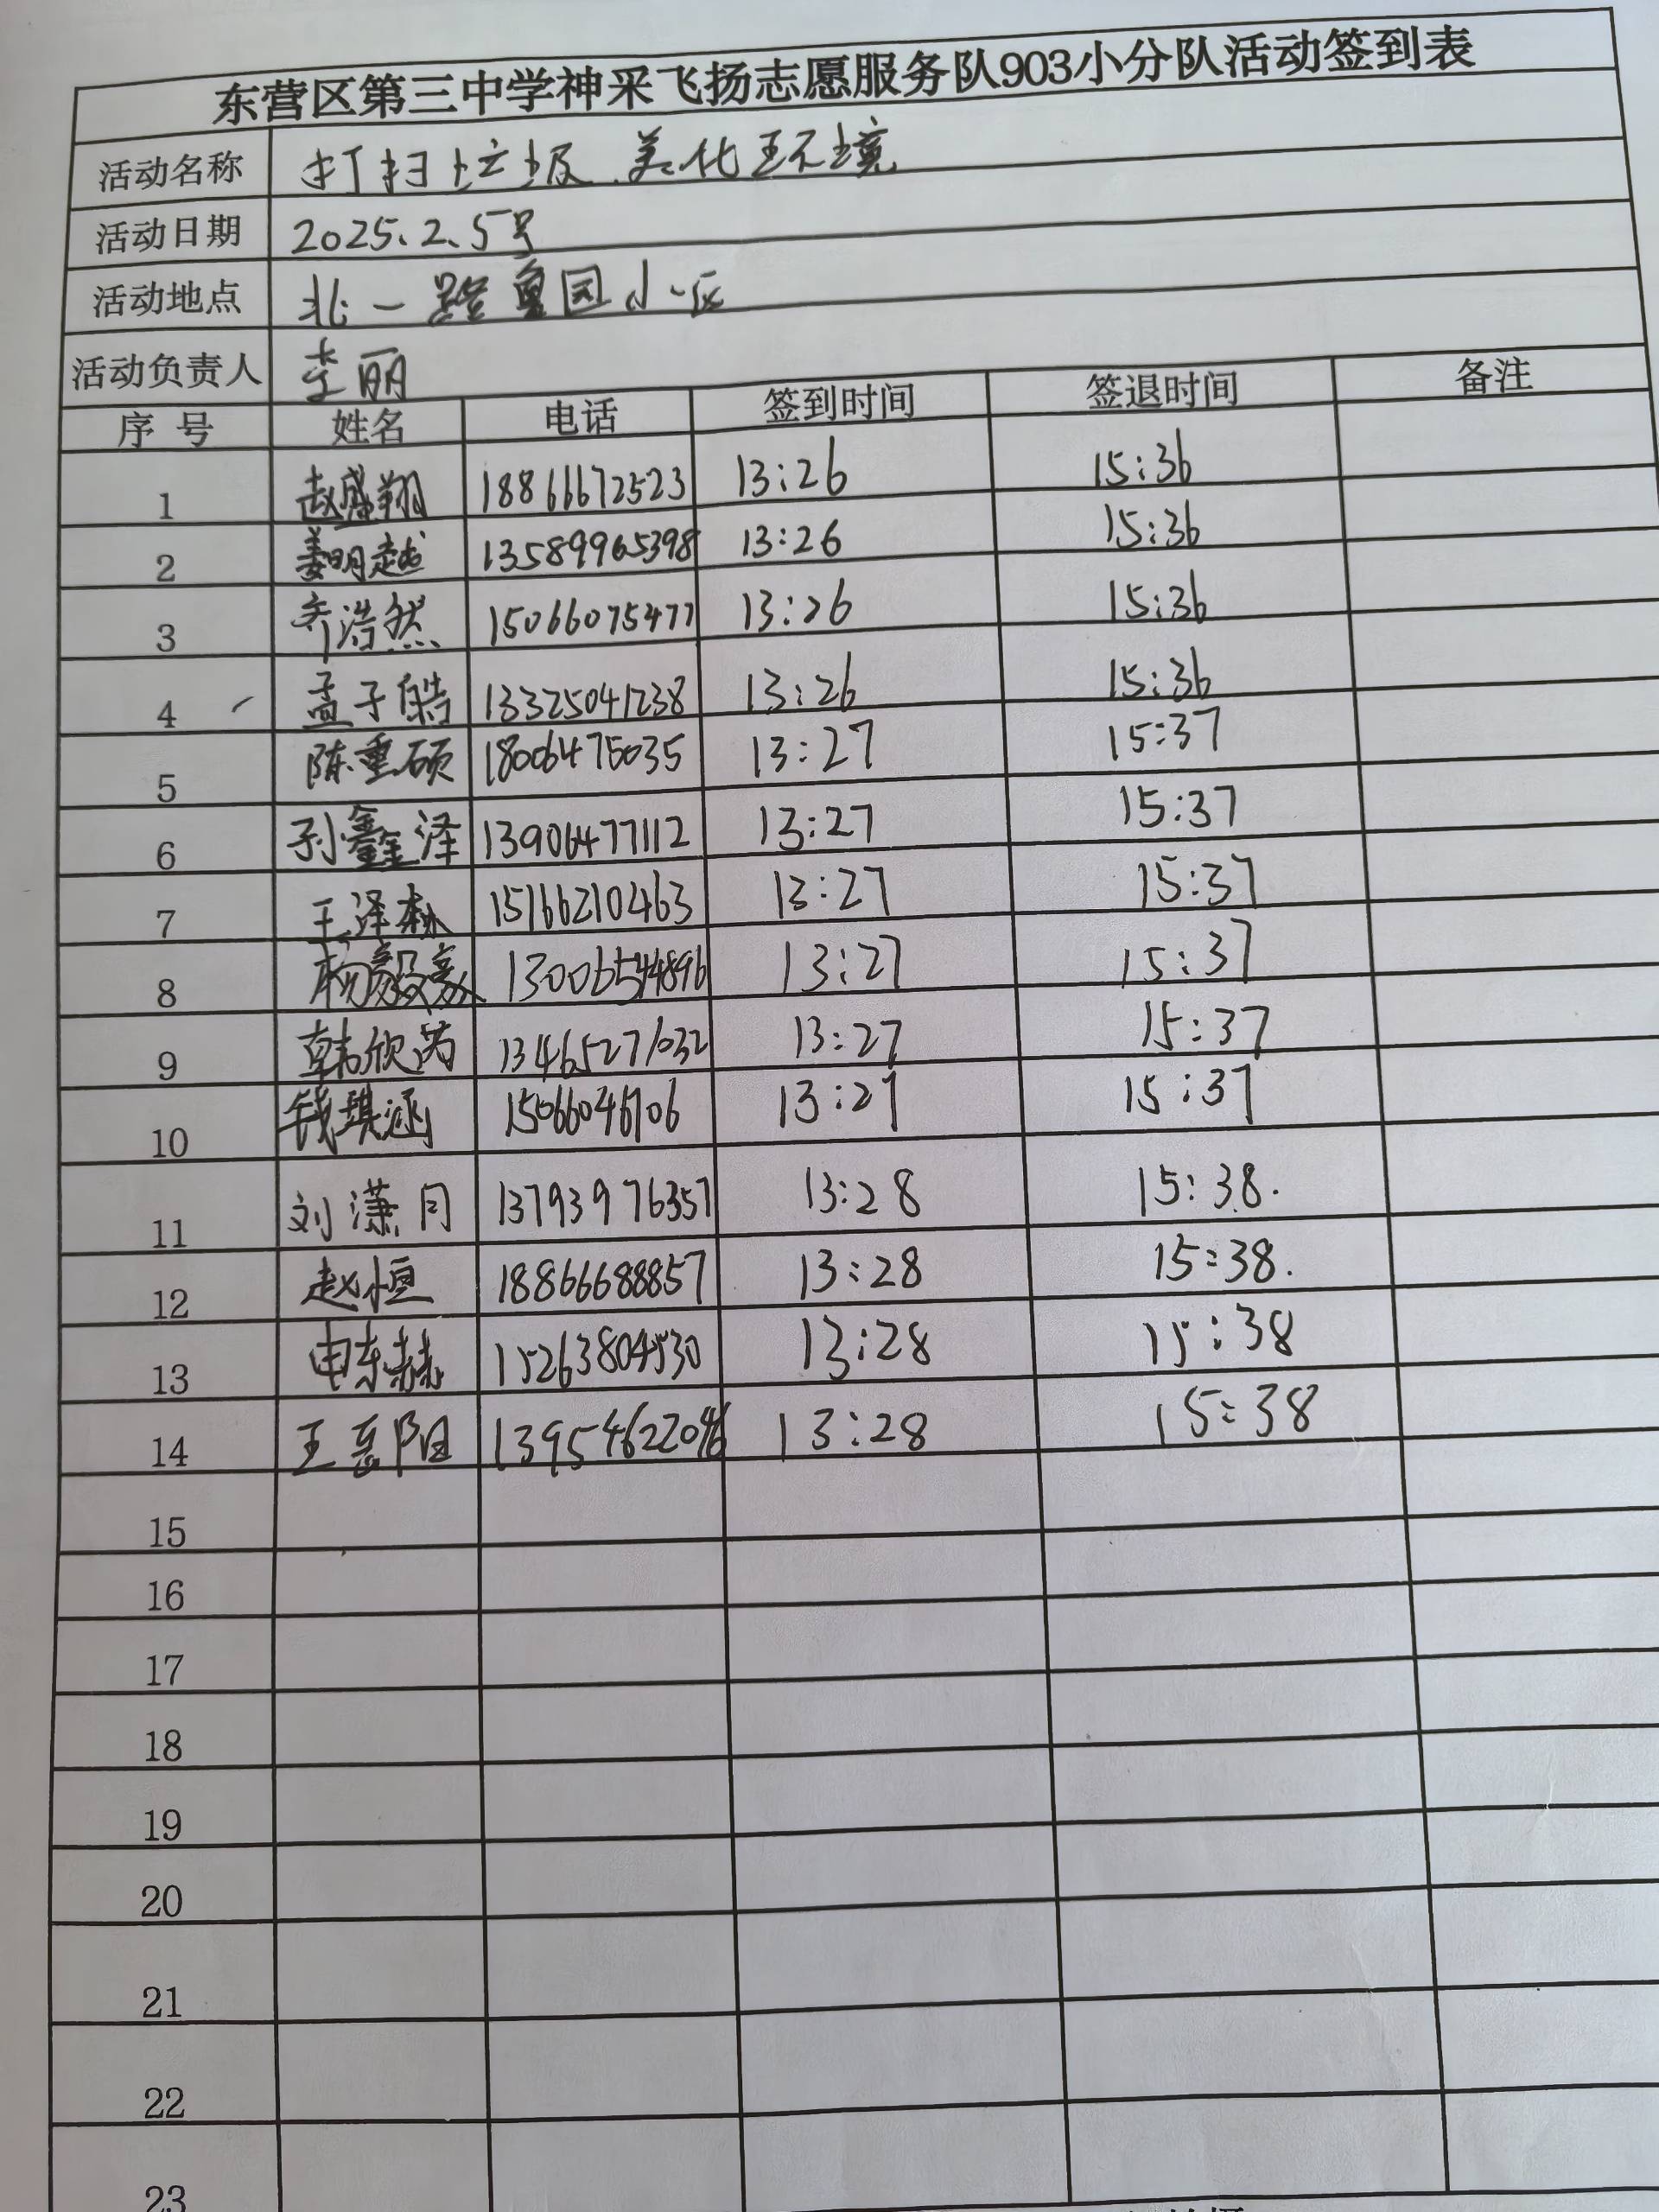 东营区第三中学神采飞扬志愿服务队903小分队活动签到表
活动名称 打扫垃圾 美化环境
活动日期 2025.2.5号
活动地点 北一路 园小区
活动负责人 李丽
序 号 姓名 电话 签到时间 签退时间 备注
1 赵盛翔 18866672523 13:26 15:36
2 姜明越 13589965398 13:26 15:36
3 乔浩然 15066075477 13:26 15:36
4 孟子皓 13325041238 13:26 15:36
5 陈重硕 18006475035 13:27 15:37
6 孙鑫泽 13906477112 13:27 15:37
7 王泽 15166210463 13:27 15:37
8 杨毅豪 13006544896 13:27 15:37
9 韩欣芮 13465271032 13:27 15:37
10 钱琪涵 15066046106 13:27 15:37
11 刘潇月 13793976357 13:28 15:38.
12 赵恒 18866688857 13:28 15:38.
13 申东赫 15263804530 13:28 15:38
14 王 阳 13954622046 13:28 15:38
15
16
17
18
19
20
21
22
23